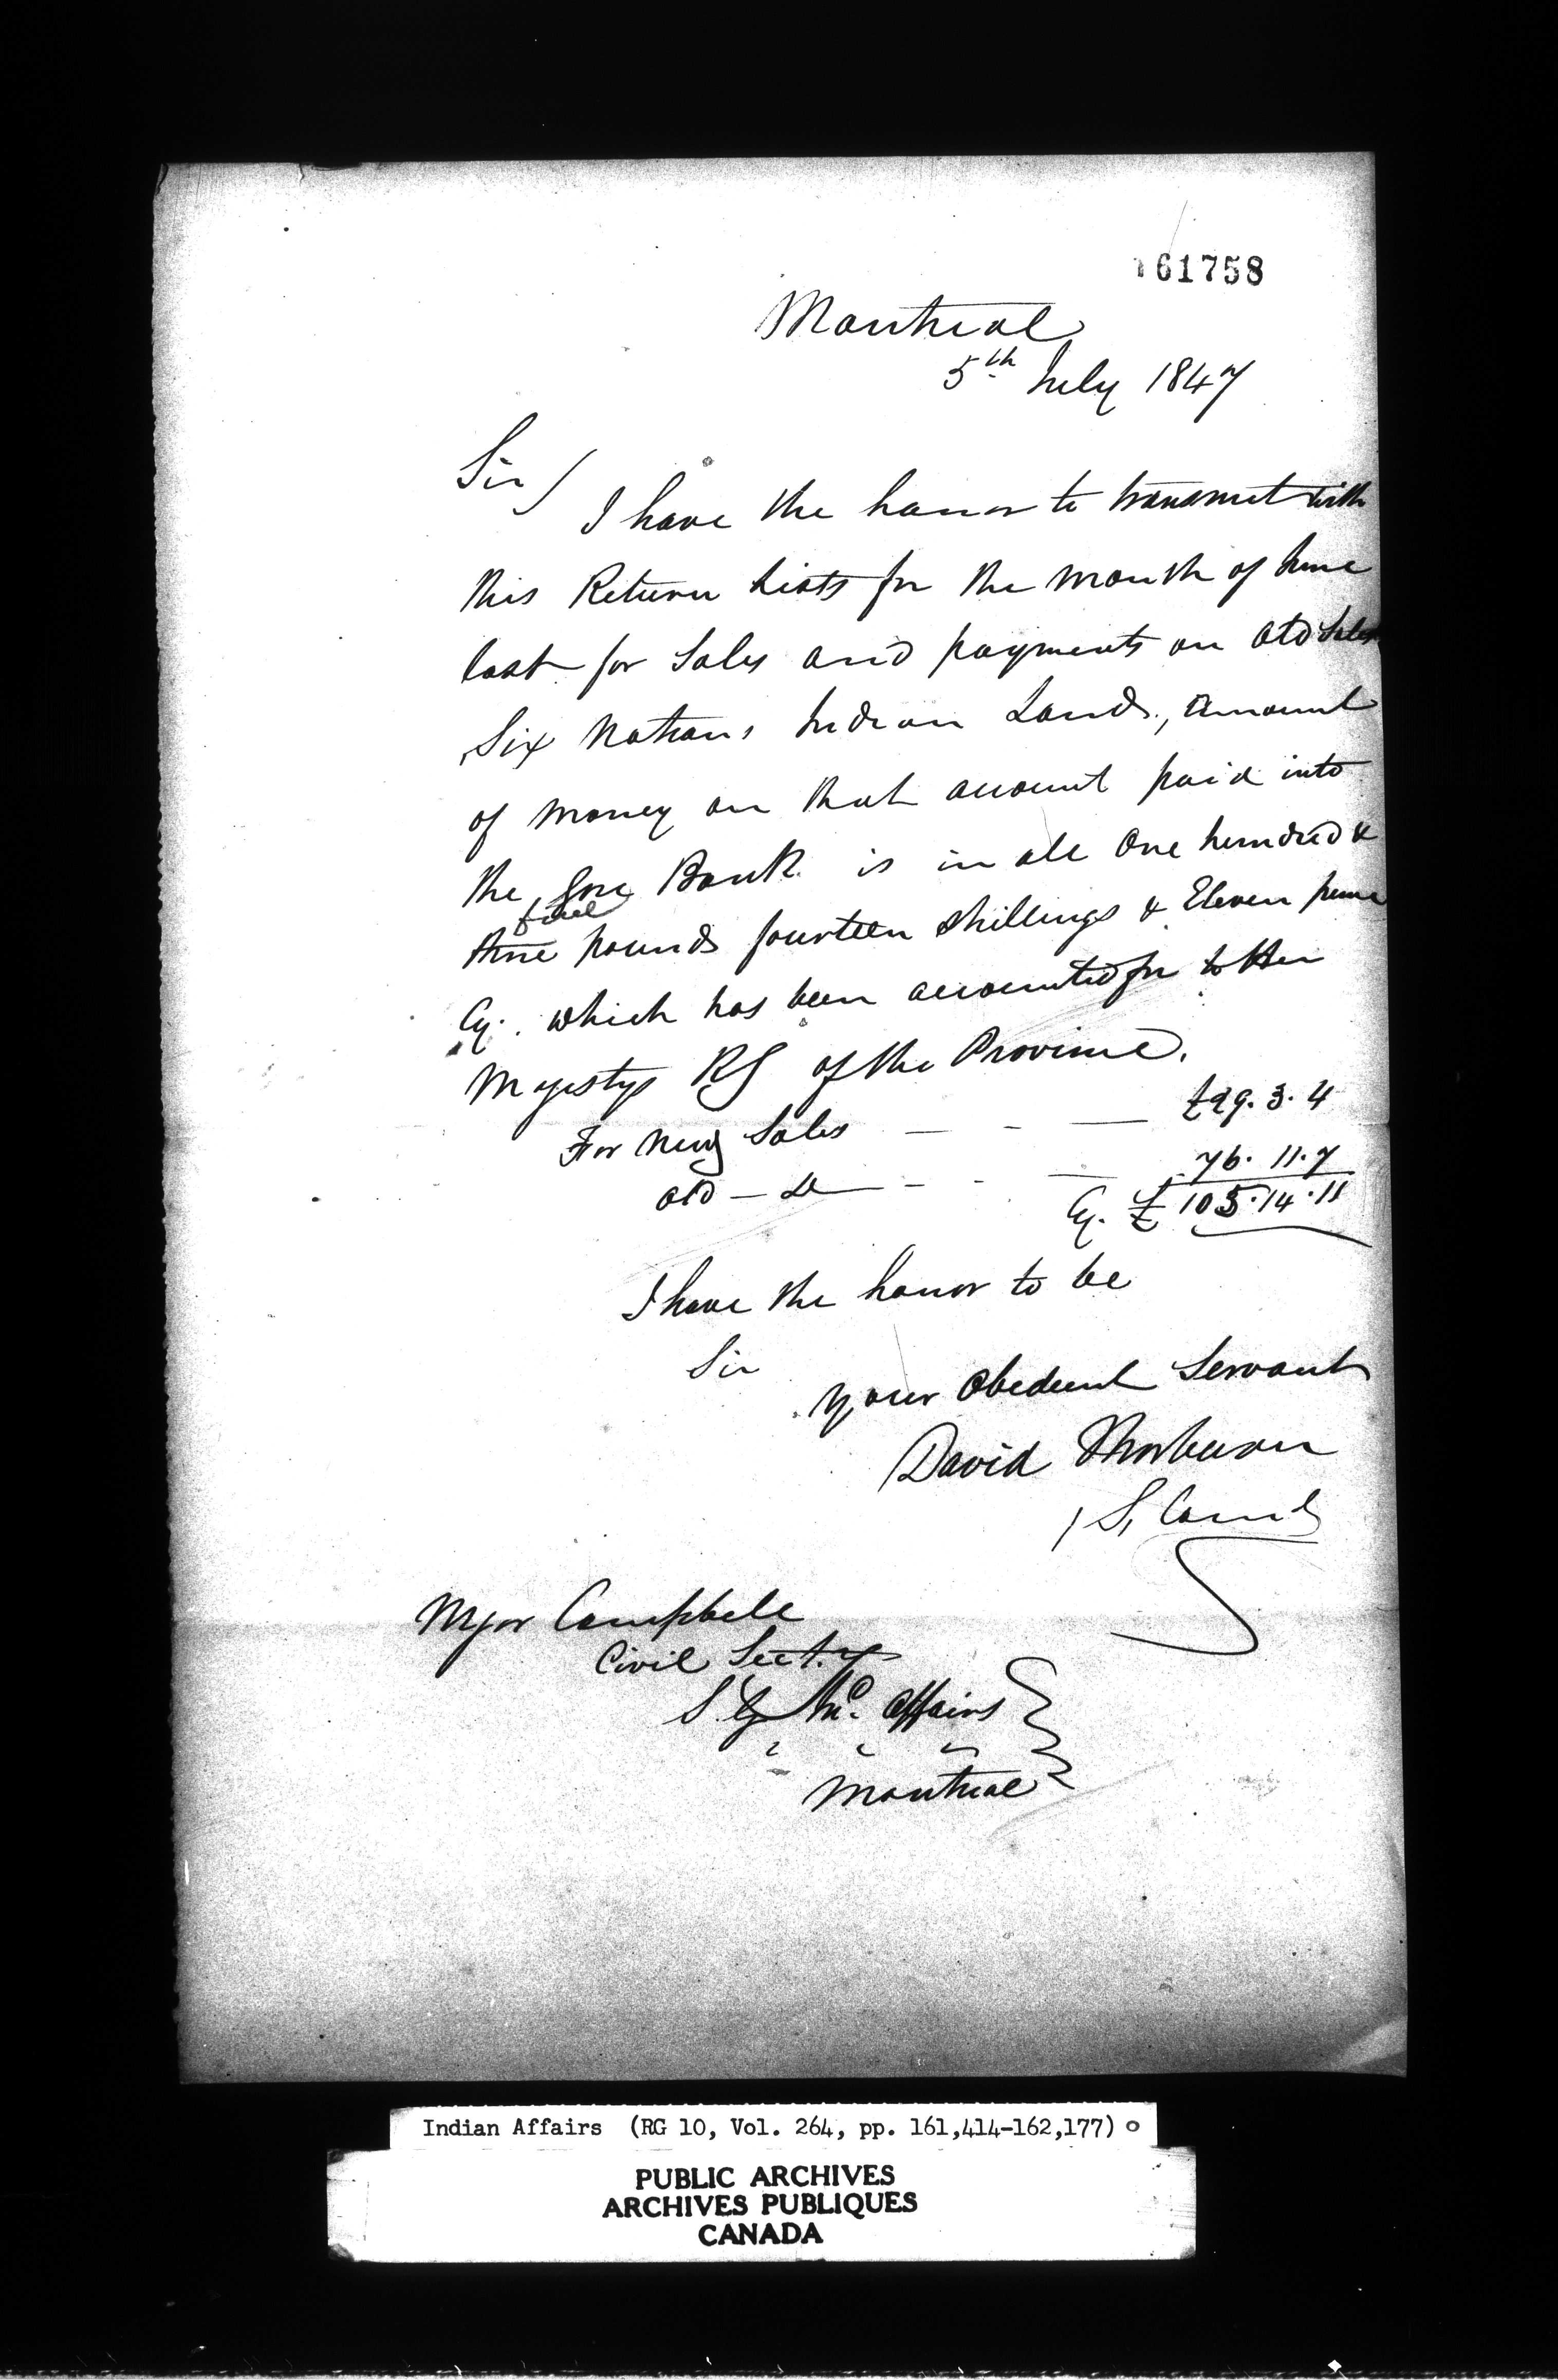 161758
Montreal
5th July 1847
Sir/
I have the honor to transmit with
this Return Lists for the month of June
last for Sales and payments on Old Sales
Six Nations Indian Lands, Amount
of money on that account paid into
the Gore Bank is in all One hundred &
five
three pounds fourteen shillings & Eleven pence
Cy. which has been accounted for to Her
Majestys RG of the Province.
For New Sales — - — £29. 3. 4
Old — Do — - - — 76. 11. 7
Cy. £ 105. 14. 11
I have the honor to be
Sir
Your Obedient Servant
David Thorburn
S. Comr
Major Campbell
Civil Secty
S. G. Ind. Affairs
Montreal
Indian Affairs (RG 10, Vol. 264, pp. 161,414-162,177)
PUBLIC ARCHIVES
ARCHIVES PUBLIQUES
CANADA